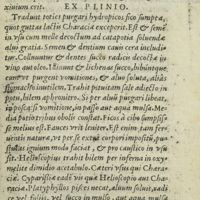 xiuium erit. EX PLINIO.
Tradunt toties purgari hydropicos fico sumpta,
quot guttas lactis Characiæ exceperit. Est & semi
in usu cum melle decoctum ad catapotia soluendæ
alui gratia. Semen & dentium cauis cera includi
tur. Colluuntur & dentes succo radicis decoctæ in
uino aut oleo. Illinunt & lichenas succo, bibuntque,
ut purgent uomitiones, & aluo soluta, aliâs
stomacho inutilem. Trahit pituitam sale adiecto in
potu, bilem aphronitro. Si per aluū purgari libeat,
in posca; si uomitione, in passo aut aqua mulsa. Me
dia potio tribus obolis constat. Ficos à cibo sumpsis-
se melius est. Fauces urit leniter. Est enim tam fer-
uentis naturæ, ut per se extra corpori imposita pu-
stulas ignium modo faciat, & pro caustico in usu
sit. Helioscopius trahit bilem per inferna in oxy-
melite dimidio acetabulo. Cæteri usus qui Characiæ
Characiæ. Cyparissiæ eadē uis quæ Helioscopio aut Chara
ciæ. Platyphyllos pisces necat, aluum soluit, radi-
ce uel folijs, uel succo in mulso, aut aqua mulsa